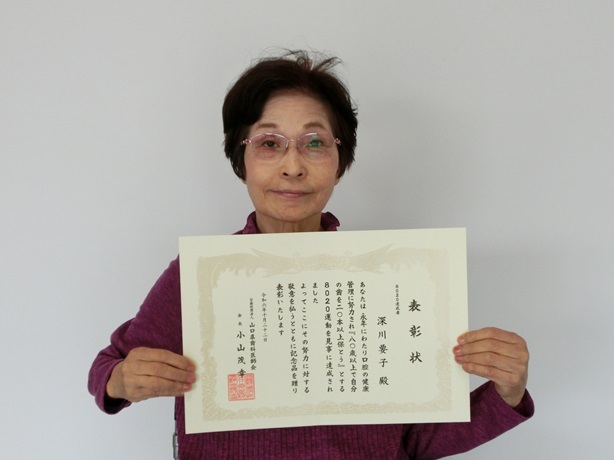 表彰状
8020達成者
深川要子 殿
あなたは永年にわたり口腔の健康
管理に努力され『八〇歳以上で自分
の歯を二〇本以上保とう』とする
8020運動を見事に達成され
ました
よってここにその努力に対する
敬意を払うとともに記念品を贈り
表彰いたします
令和六年十月二十一日
会長 小山茂幸